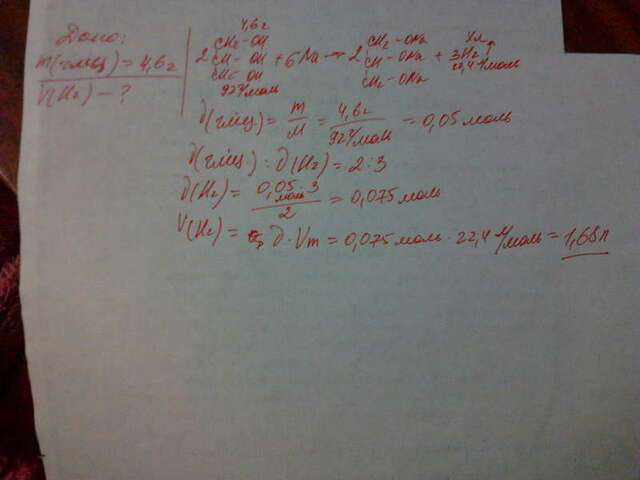 Дано:
m(глиц) = 4,6г
V(H₂) – ?
4,6г
CH₂ – OH CH₂ – ONa
2 CH – OH + 6Na → 2 CH – ONa + 3H₂↑
CH₂ – OH CH₂ – ONa 22,4 л/моль
92г/моль
ν(глиц) = m/M = 4,6г / 92г/моль = 0,05 моль
ν(глиц) : ν(H₂) = 2:3
ν(H₂) = 0,05 моль · 3 / 2 = 0,075 моль
V(H₂) = ν · Vm = 0,075 моль · 22,4 л/моль = 1,68л